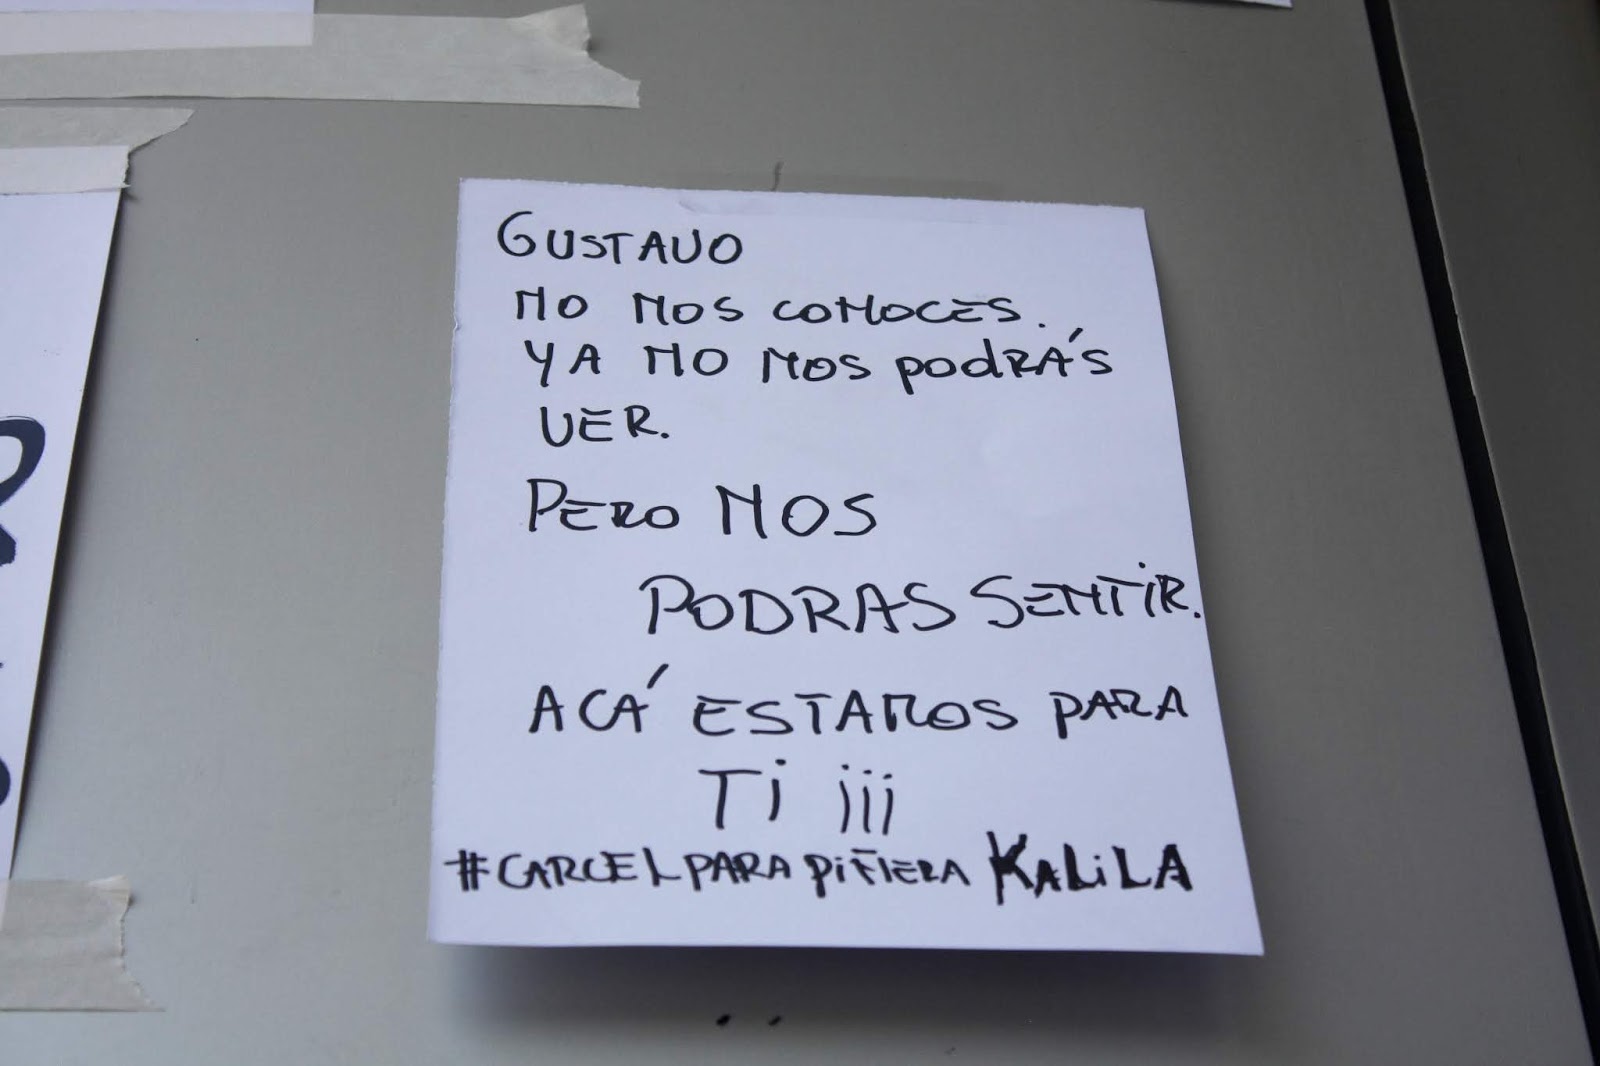 GUSTAVO
NO NOS CONOCES.
YA NO NOS PODRÁS
VER.
PERO NOS
PODRAS SENTIR.
ACÁ ESTAMOS PARA
Ti ¡¡¡
#CARCELPARAPIÑERA KALiLA